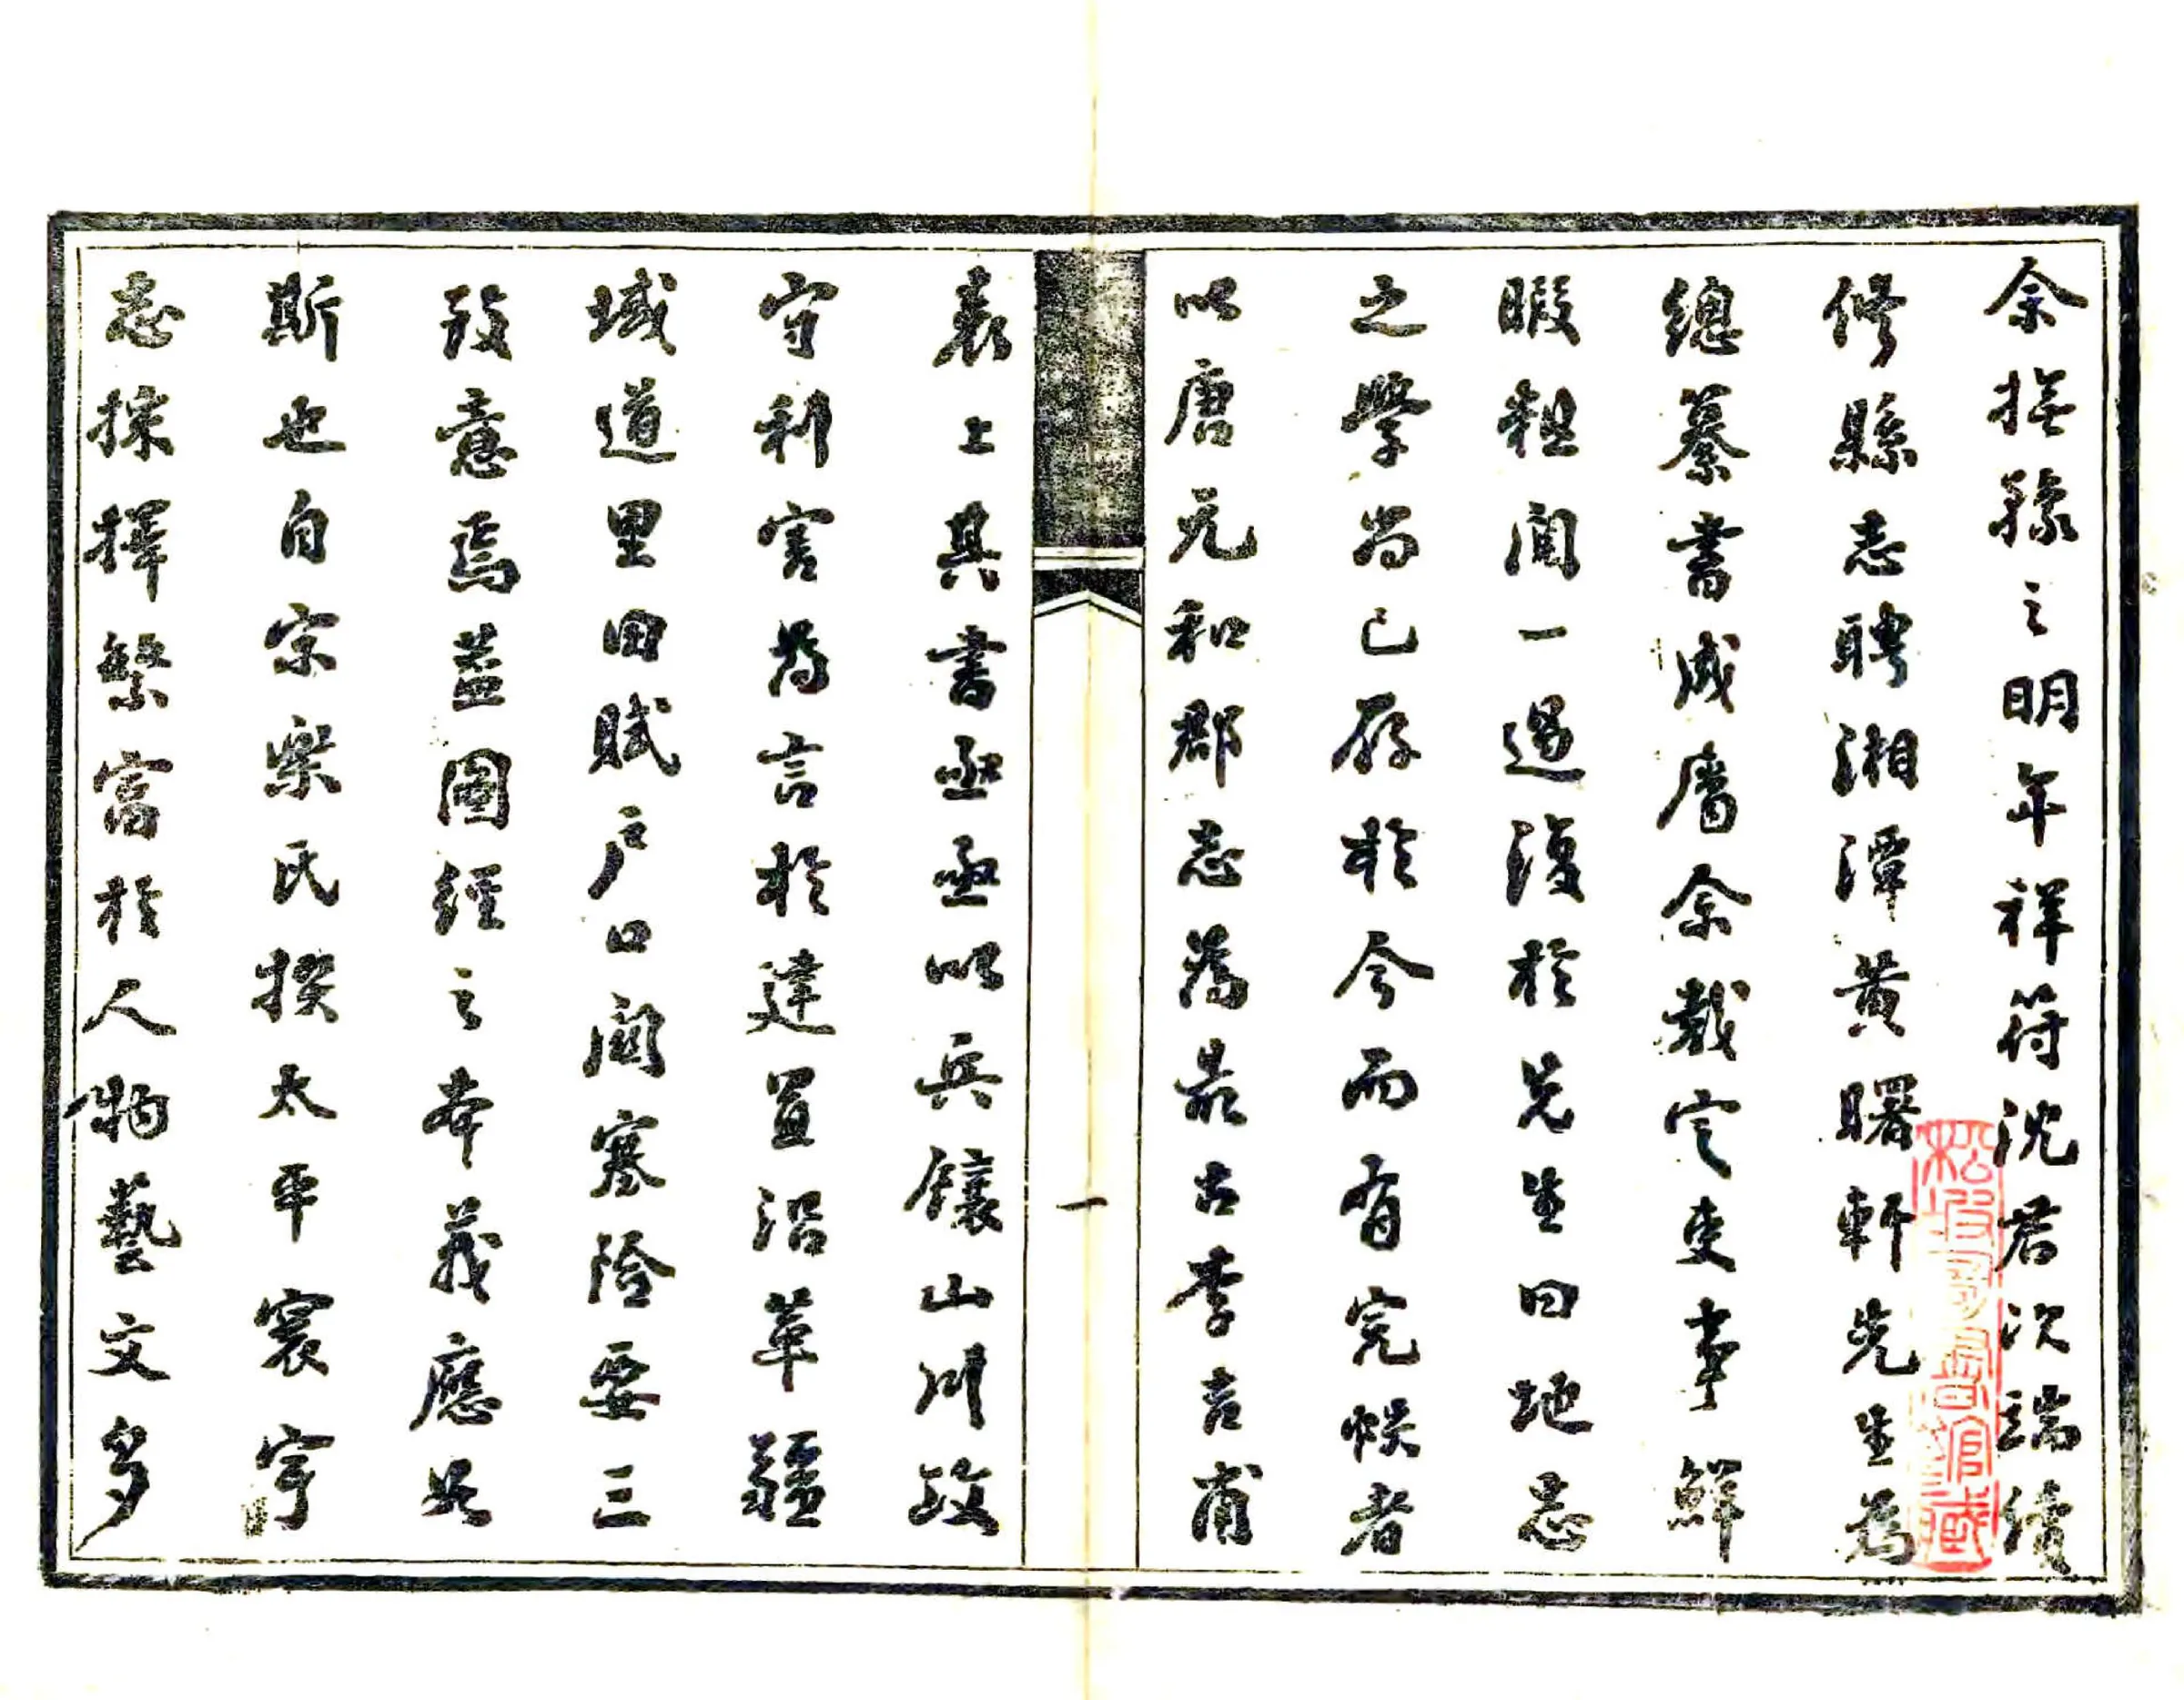 余撫豫之明年祥符沈君次端續
修縣志聘湘潭黃曙軒先生為
總纂書成屬余裁定吏事鮮
暇粗閱一過復於先生曰地志
之學尚已存於今而有完帙者
以唐元和郡志為最古李吉甫
表上其書亟亟以兵鑲山川攻
守利害為言於建置沿革疆
域道里田賦戶口關塞險要三
致意焉蓋圖經之本義應如
斯也自宋樂氏撰太平寰宇
志採擇繁富於人物藝文多
一
松坡圖書館藏